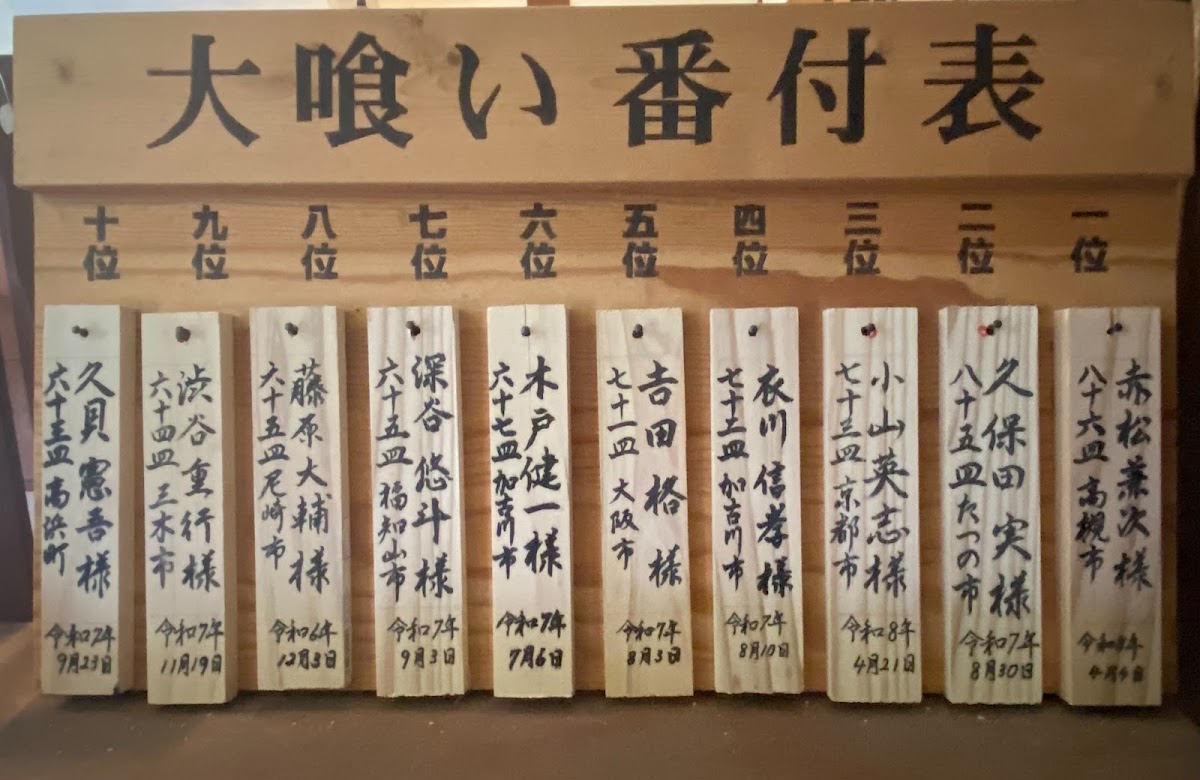 大喰い番付表
一位
赤松兼次様
八十六皿 高槻市
令和8年
4月4日
二位
久保田実様
八十五皿 たつの市
令和7年
8月30日
三位
小山英志様
七十三皿 京都市
令和8年
4月21日
四位
衣川信孝様
七十二皿 加古川市
令和7年
8月10日
五位
吉田 格 様
七十一皿 大阪市
令和7年
8月3日
六位
木戸健一様
六十七皿 加古川市
令和7年
7月6日
七位
深谷悠斗様
六十五皿 福知山市
令和7年
9月3日
八位
藤原大輔様
六十五皿 尼崎市
令和6年
12月3日
九位
渋谷重行様
六十四皿 三木市
令和7年
11月19日
十位
久貝憲吾様
六十三皿 高浜町
令和7年
9月23日